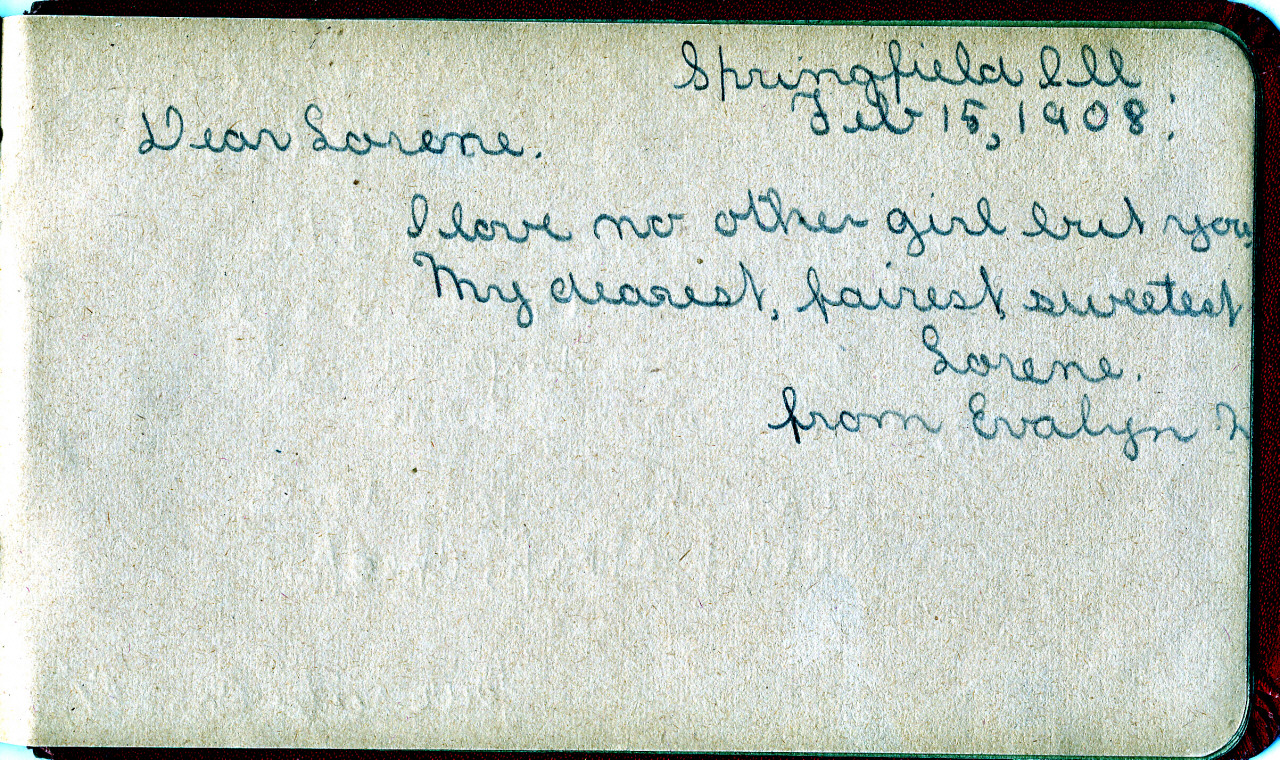 Springfield Ill
Feb 15, 1908.
Dear Lorene.
I love no other girl but you,
My dearest, fairest, sweetest
Lorene.
from Evalyn